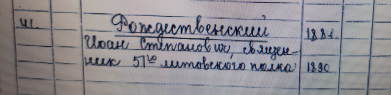 41. Рождественский 1884.
Иоан Степанович, священ-
ник 57го литовского полка 1890